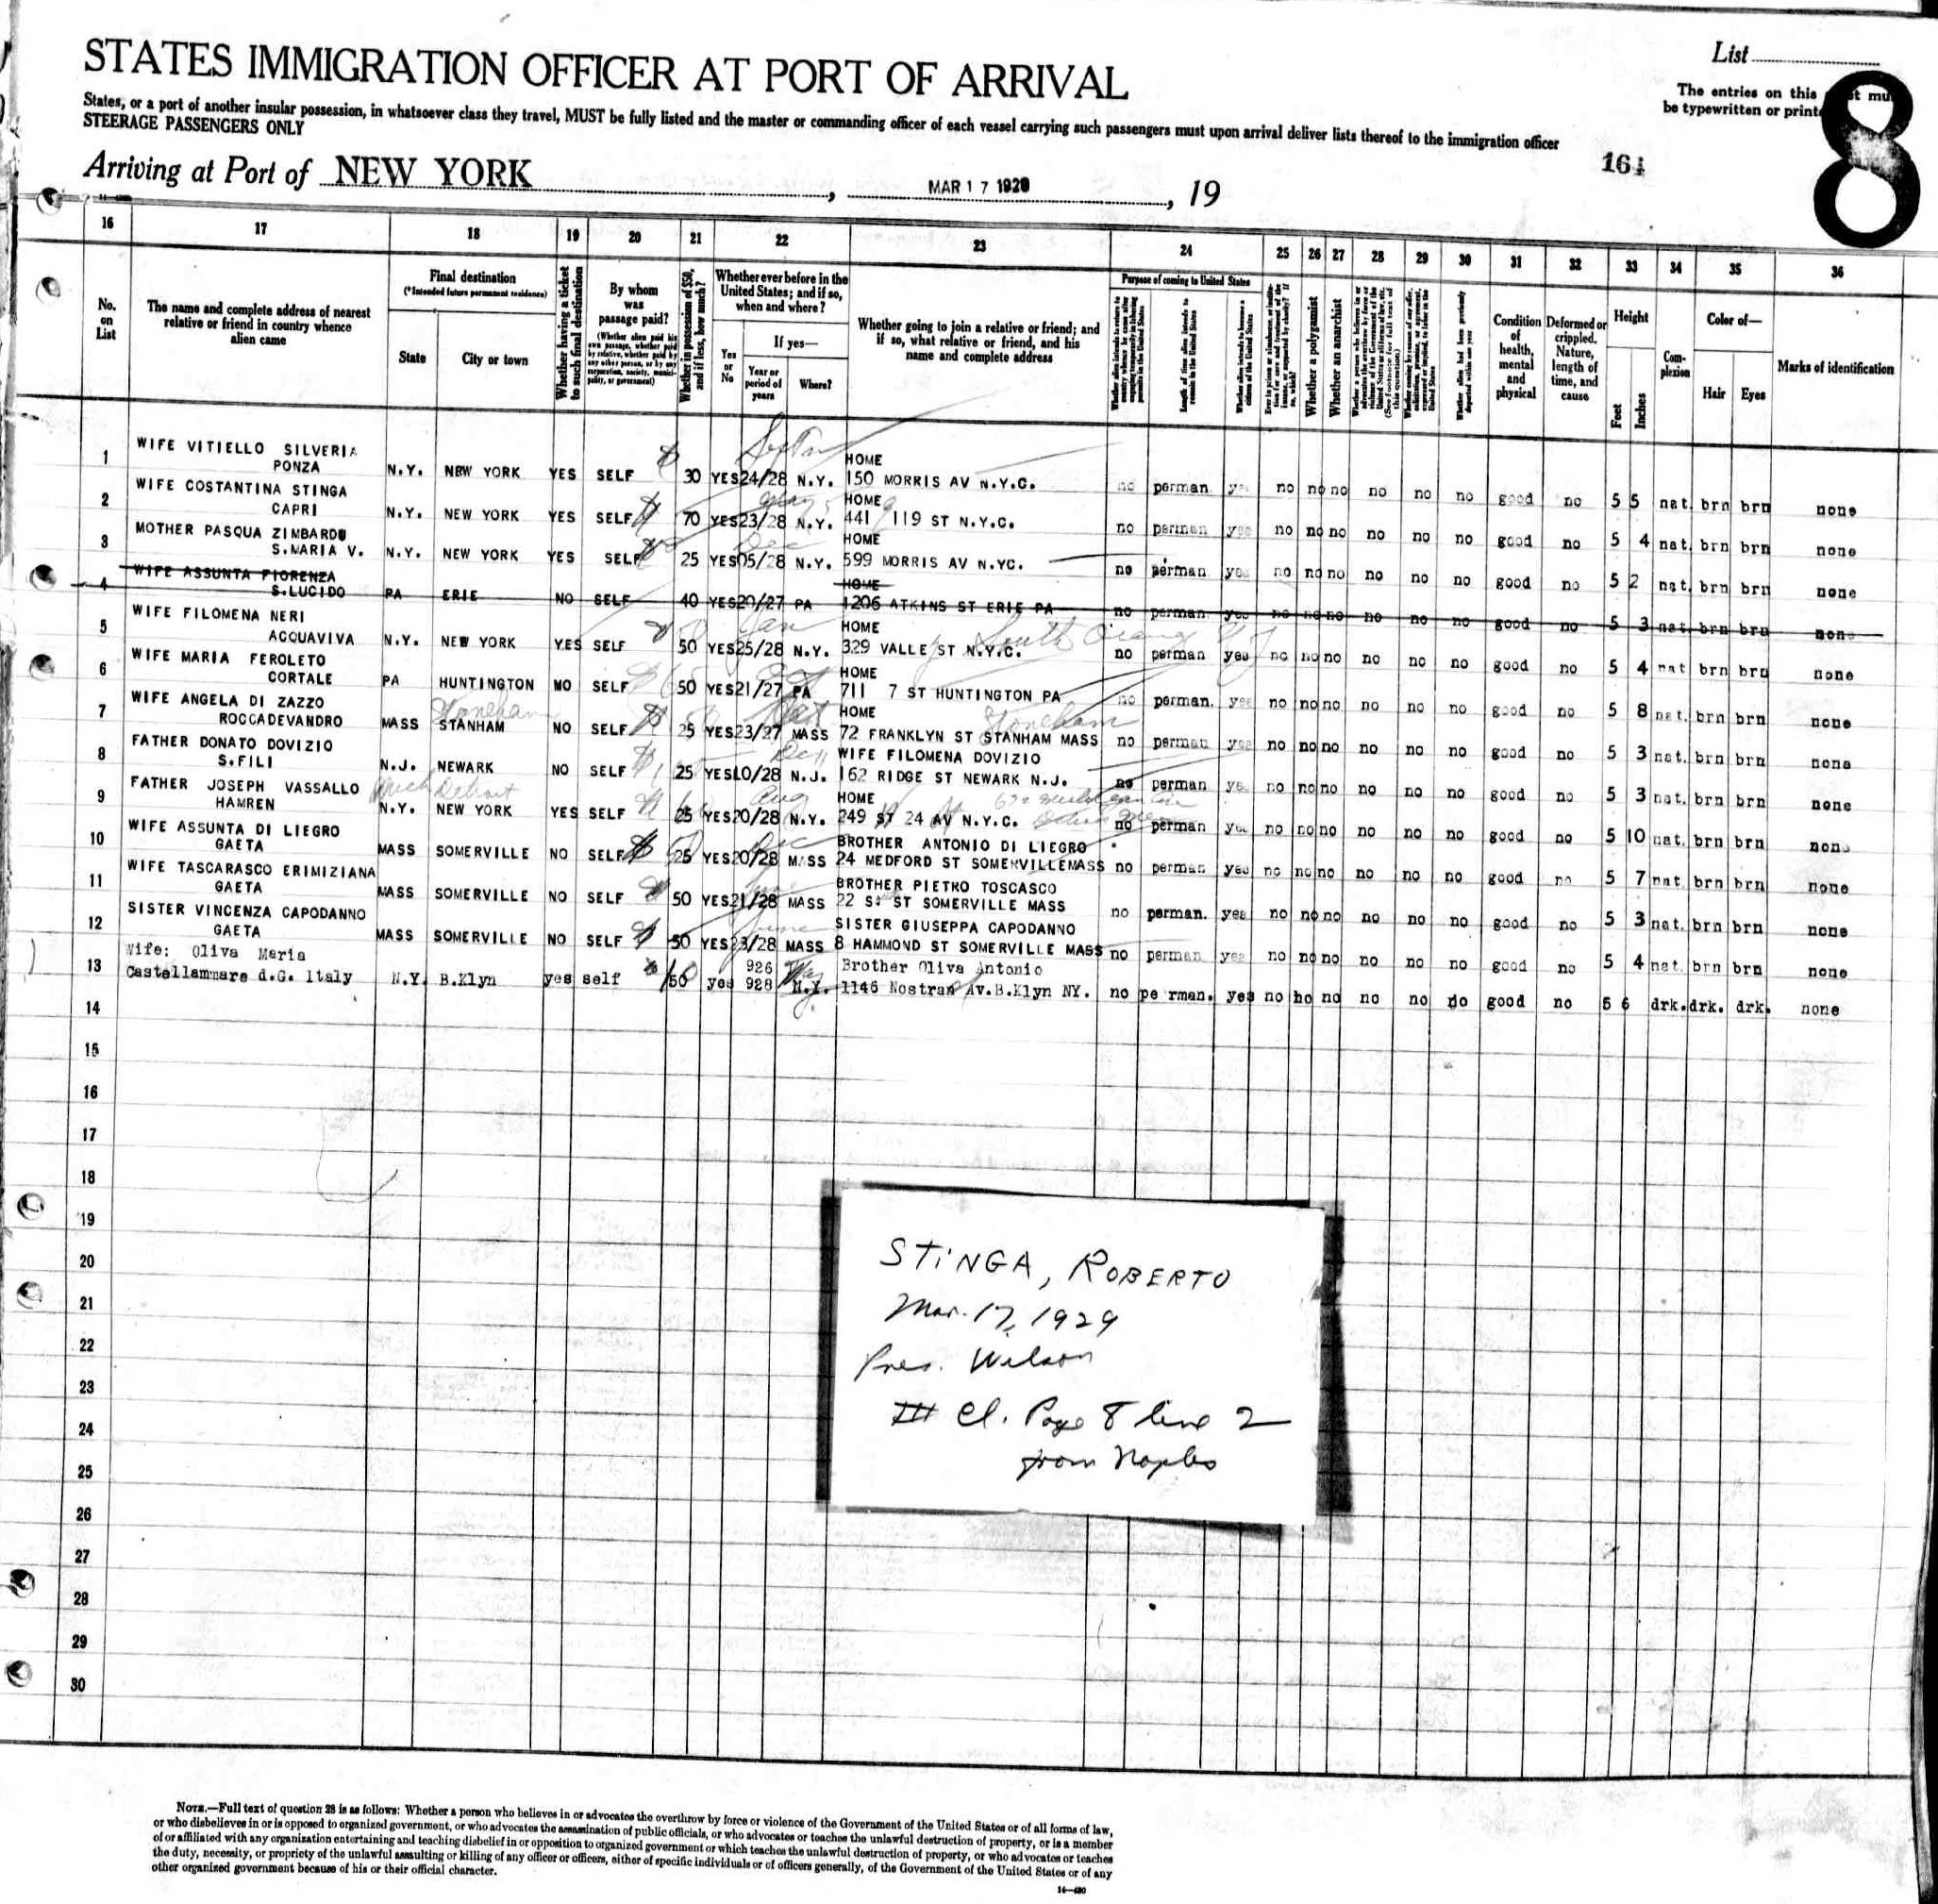 List
The entries on this
be typewritten or
8
STATES IMMIGRATION OFFICER AT PORT OF ARRIVAL
States, or a port of another insular possession, in whatsoever class they travel, MUST be fully listed and the master or commanding officer of each vessel carrying such passengers must upon arrival deliver lists thereof to the immigration officer
STEERAGE PASSENGERS ONLY
Arriving at Port of NEW YORK, MAR 17 1929, 19
16 17 18 19 20 21 22 23 24 25 26 27 28 29 30 31 32 33 34 35 36
No. on List
The name and complete address of nearest relative or friend in country whence alien came
Final destination
(*Intended future permanent residence)
State
City or town
Whether having a ticket to such final destination
By whom was passage paid?
(Whether alien paid his own passage, whether paid by relative, whether paid by any other person, or by any corporation, society, municipality, or government)
Whether in possession of $50, and if less, how much?
Whether ever before in the United States; and if so, when and where?
Yes or No
If yes—
Year or period of years
Where?
Whether going to join a relative or friend; and if so, what relative or friend, and his name and complete address
Purpose of coming to United States
Length of time alien intends to remain in the United States
Whether a polygamist
Whether an anarchist
Condition of health, mental and physical
Deformed or crippled. Nature, length of time, and cause
Height
Feet
Inches
Complexion
Color of—
Hair
Eyes
Marks of identification
1 WIFE VITIELLO SILVERIA HOME
PONZA N.Y. NEW YORK YES SELF 30 YES 24/28 N.Y. 150 MORRIS AV N.Y.C. no perman. yes no no no no no no good no 5 5 nat. brn brn none
2 WIFE COSTANTINA STINGA HOME
CAPRI N.Y. NEW YORK YES SELF 70 YES 23/28 N.Y. 441 119 ST N.Y.C. no perman yes no no no no no no good no 5 4 nat. brn brn none
3 MOTHER PASQUA ZIMBARDO HOME
S.MARIA V. N.Y. NEW YORK YES SELF 25 YES 05/28 N.Y. 599 MORRIS AV N.YC. no perman yes no no no no no no good no 5 2 nat. brn brn none
4 WIFE ASSUNTA FIORENZA HOME
S.LUCIDO PA ERIE NO SELF 40 YES 20/27 PA 1206 ATKINS ST ERIE PA no perman yes no no no no no no good no 5 3 nat brn brn none
5 WIFE FILOMENA NERI Jan HOME South Orange N J
ACQUAVIVA N.Y. NEW YORK YES SELF 50 YES 25/28 N.Y. 329 VALLE ST N.Y.C. no perman yes no no no no no no good no 5 4 nat brn brn none
6 WIFE MARIA FEROLETO HOME
CORTALE PA HUNTINGTON NO SELF 50 YES 21/27 PA 711 7 ST HUNTINGTON PA no perman. yes no no no no no no good no 5 8 nat. brn brn none
7 WIFE ANGELA DI ZAZZO Stoneham HOME Stoneham
ROCCADEVANDRO MASS STANHAM NO SELF 25 YES 23/27 MASS 72 FRANKLYN ST STANHAM MASS no perman yes no no no no no no good no 5 3 nat. brn brn none
8 FATHER DONATO DOVIZIO Dec WIFE FILOMENA DOVIZIO
S.FILI N.J. NEWARK NO SELF 25 YES 10/28 N.J. 162 RIDGE ST NEWARK N.J. no perman yes no no no no no no good no 5 3 nat. brn brn none
9 FATHER JOSEPH VASSALLO Mich Detroit Aug HOME
HAMREN N.Y. NEW YORK YES SELF 25 YES 20/28 N.Y. 249 ST 24 AV N.Y.C. no perman yes no no no no no no good no 5 10 nat. brn brn none
10 WIFE ASSUNTA DI LIEGRO Dec BROTHER ANTONIO DI LIEGRO
GAETA MASS SOMERVILLE NO SELF 25 YES 20/28 MASS 24 MEDFORD ST SOMERVILLE MASS no perman yes no no no no no no good no 5 7 nat brn brn none
11 WIFE TASCARASCO ERIMIZIANA June BROTHER PIETRO TOSCASCO
GAETA MASS SOMERVILLE NO SELF 50 YES 21/28 MASS 22 ST SOMERVILLE MASS no perman. yes no no no no no no good no 5 3 nat. brn brn none
12 SISTER VINCENZA CAPODANNO June SISTER GIUSEPPA CAPODANNO
GAETA MASS SOMERVILLE NO SELF 50 YES 23/28 MASS 8 HAMMOND ST SOMERVILLE MASS no perman yes no no no no no no good no 5 4 nat. brn brn none
13 Wife: Oliva Maria 926 Brother Oliva Antonio
Castellammare d.G. Italy N.Y. B.Klyn yes self 50 yes 928 N.Y. 1146 Nostran Av.B.Klyn NY. no pe rman. yes no no no no no no good no 5 6 drk. drk. drk. none
14
15
16
17
18
19
20
21
22
23
24
25
26
27
28
29
30
STINGA, ROBERTO
Mar. 17, 1929
Pres. Wilson
III Cl. Page 8 line 2
from Naples
NOTE.—Full text of question 28 is as follows: Whether a person who believes in or advocates the overthrow by force or violence of the Government of the United States or of all forms of law,
or who disbelieves in or is opposed to organized government, or who advocates the assassination of public officials, or who advocates or teaches the unlawful destruction of property, or is a member
of or affiliated with any organization entertaining and teaching disbelief in or opposition to organized government or which teaches the unlawful destruction of property, or who advocates or teaches
the duty, necessity, or propriety of the unlawful assaulting or killing of any officer or officers, either of specific individuals or of officers generally, of the Government of the United States or of any
other organized government because of his or their official character.